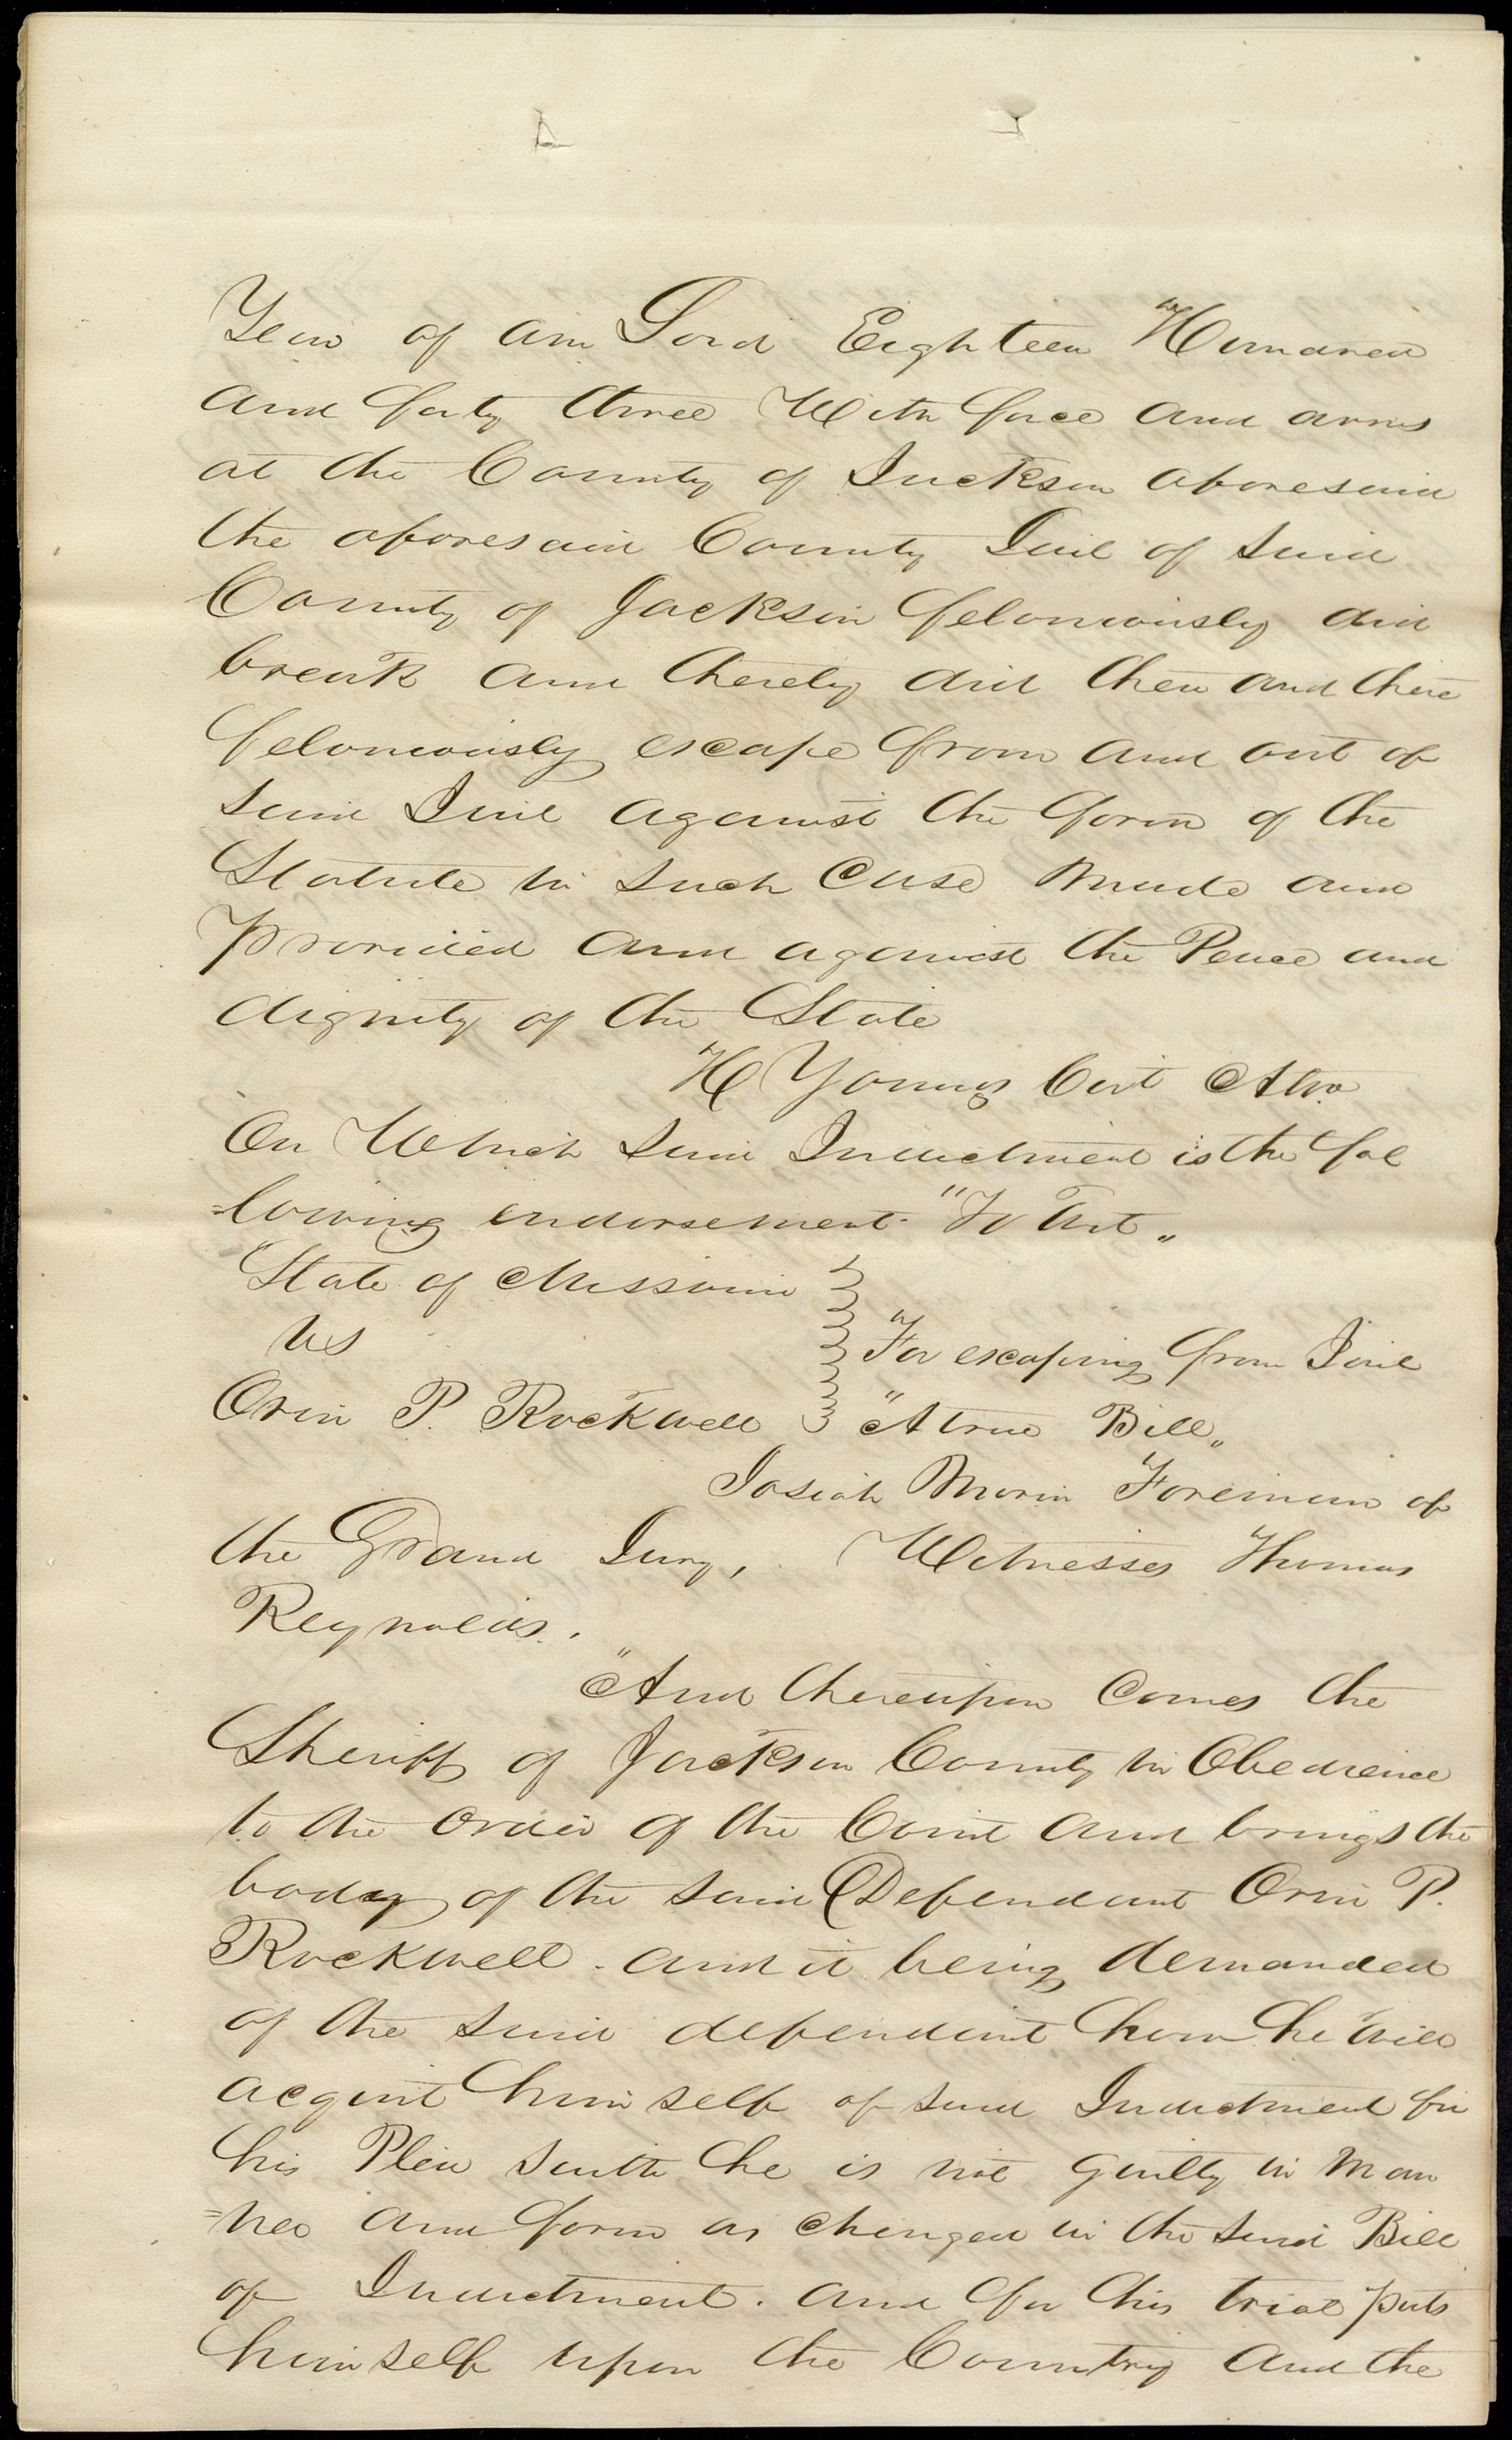 Year of our Lord Eighteen Hundred
and forty three With force and arms
at the County of Jackson aforesaid
the aforesaid County Jail of said
County of Jackson feloniously did
break and thereby did then and there
feloniously escape from and out of
said Jail against the form of the
Statute in such Case Made and
provided and against the Peace and
dignity of the State
H Youngs Cirt Atto
On Which said Indictment is the fol
=lowing endorsement "To Wit"
State of Missouri
vs
"For escaping from Jail
Orin P. Rockwell
"A true Bill"
Josiah Morin Foreman of
the Grand Jury, Witnesses Thomas
Reynolds.
"And thereupon Comes the
Sheriff of Jackson County in Obedience
to the order of the Court and brings the
body of the said Defendant Orin P.
Rockwell. and it being demanded
of the said defendant how he will
acquit himself of said Indictment for
his Plea saith he is not guilty in Man
=ner and form as charged in the said Bill
of Indictment. and for his trial puts
himself upon the Country and the